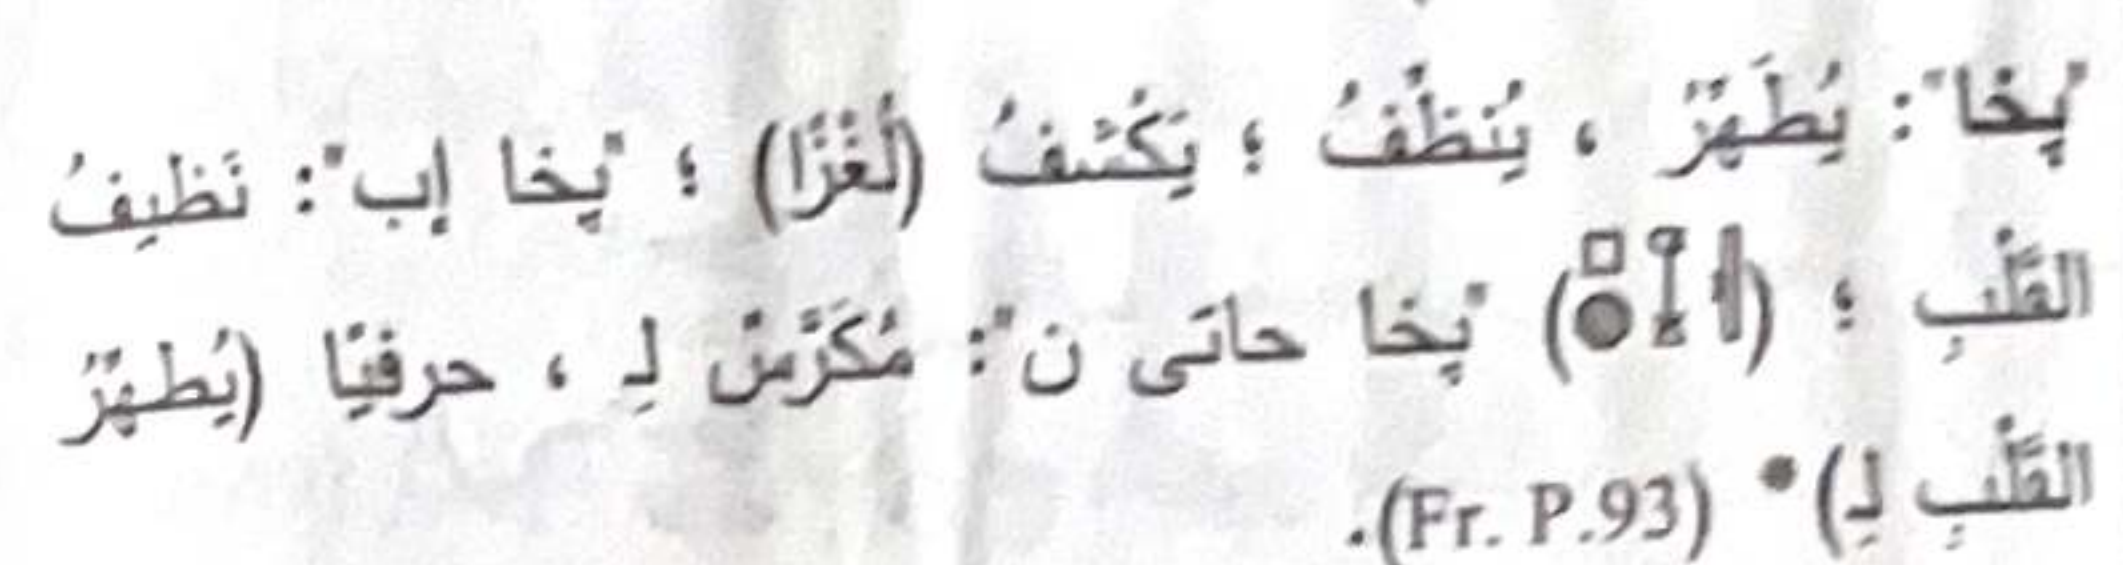 "پِخا": يُطَهِّرُ ، يُنَظِّفُ ؛ يَكْشفُ (لُغْزًا) ؛ "پِخا إب": نَظيِفُ
القَلْبِ ؛ () "پِخا حاتى ن": مُكَرَّسٌ لِـ ، حرفيًا (يُطهِّرُ
القَلْبِ لِـ) • (Fr. P.93).